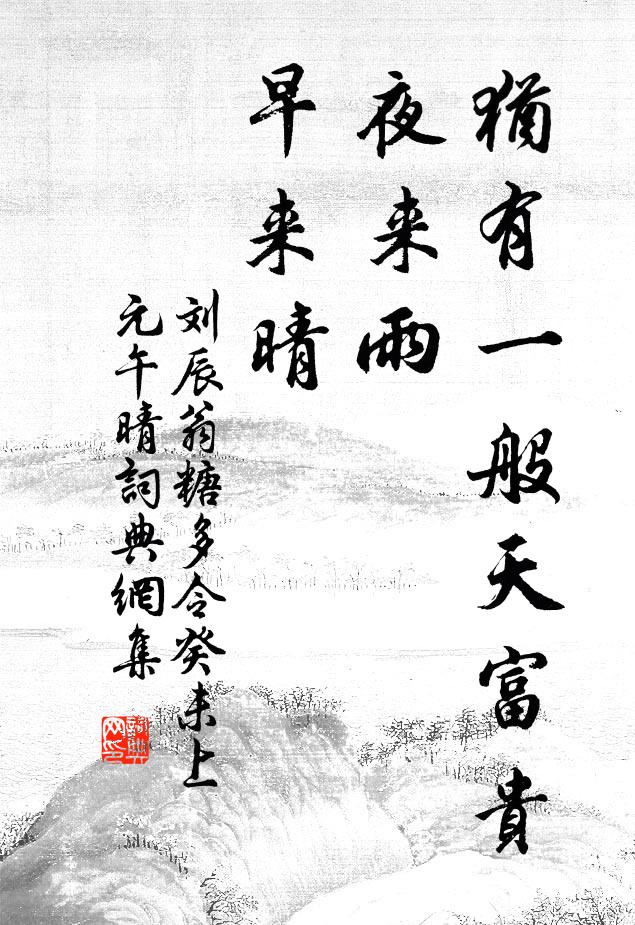 猶有一般天富貴
夜来雨
早来晴
刘辰翁糖多令癸未上
元午晴詞典網集
詞典
网印